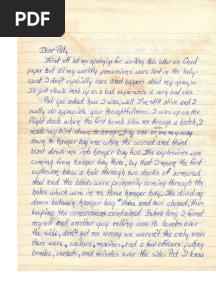 PDF
Dear Pat,
First off let me apologize for writing this letter on lined
paper but all my worldly possessions were lost in the holo-
caust. I don't especially care what happens about my gear, so
I'll just chock that up as a bad experience, a very bad one.
Pat you asked how I was, well I'm still alive and I
really do appreciate your thoughtfulness. I was up on the
flight deck when the first bomb blew me through a hatch, I
made my way down to hangar bay one or on my way
down to hangar bay one while the second and third
blast drove me into hangar bay two. The explosions were
coming from hangar bay three, by that I mean the first
explosion blew a hole through two decks of armored
steel and the bombs were primarily coming through the
holes which were in no three hangar bay. The dividing
doors between hangar bay three and two closed, thus
keeping the concussions contained. Before long I found
myself and another guy rolling 500 lb. bombs over
the side, don't get me wrong we weren't the only ones
there were, sailors, marines, and a few officers putting
bombs, rockets, and missiles over the side. Pat I know